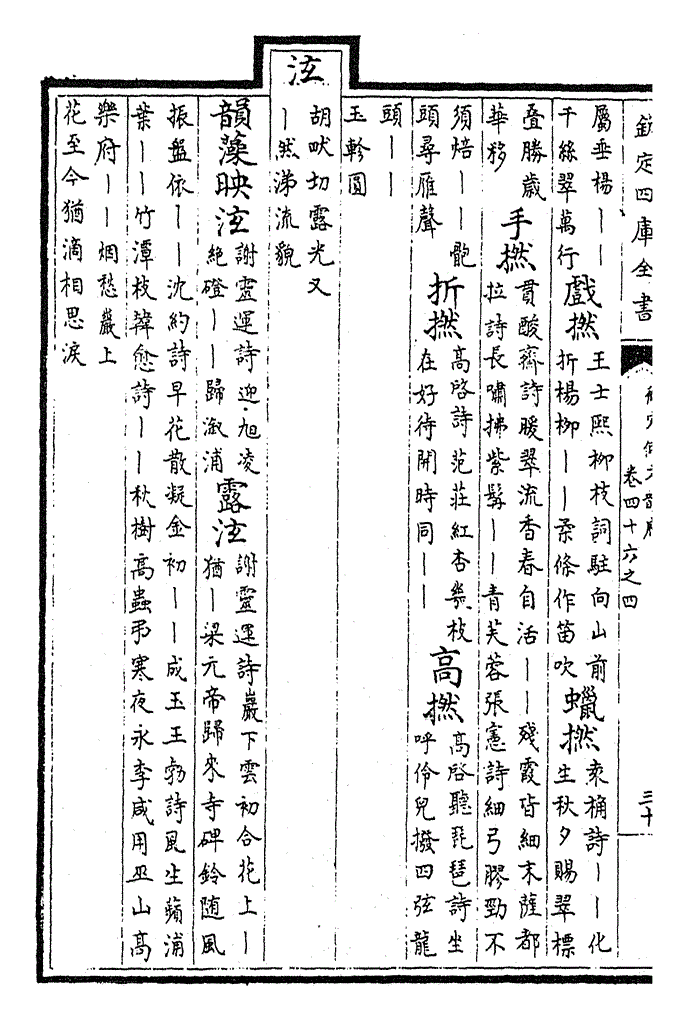 欽定四庫全書
卷四十六之四
三十
屬垂楊丨丨
千絲翠萬行
戲撚
王士熙柳枝詞駐向山前
折楊柳丨丨柔條作笛吹
蠟撚
袁桷詩丨丨化
生秋夕賜翠標
疊勝歲
華移
手撚
貫酸齋詩暖翠流香春自活丨丨殘霞皆細末薩都
拉詩長嘯拂紫髯丨丨青芙蓉張憲詩細弓膠勁不
須焙丨丨骲
頭尋雁聲
折撚
高啓詩范莊紅杏幾枝
在好待開時同丨丨
高撚
高啓聽琵琶詩坐
呼伶兒撥四弦龍
頭丨丨
玉軫圓
泫
胡畎切露光又
丨然涕流貌
韻藻映泫
謝靈運詩迎旭凌
絕磴丨丨歸溆浦
露泫
謝靈運詩巖下雲初合花上丨
猶丨梁元帝歸來寺碑鈴随風
振盤依丨丨沈約詩早花散凝金初丨丨成玉王勃詩風生蘋浦
葉丨丨竹潭枝韓愈詩丨丨秋樹高蟲弔寒夜永李咸用巫山高
樂府丨丨烟愁巖上
花至今猶滴相思淚